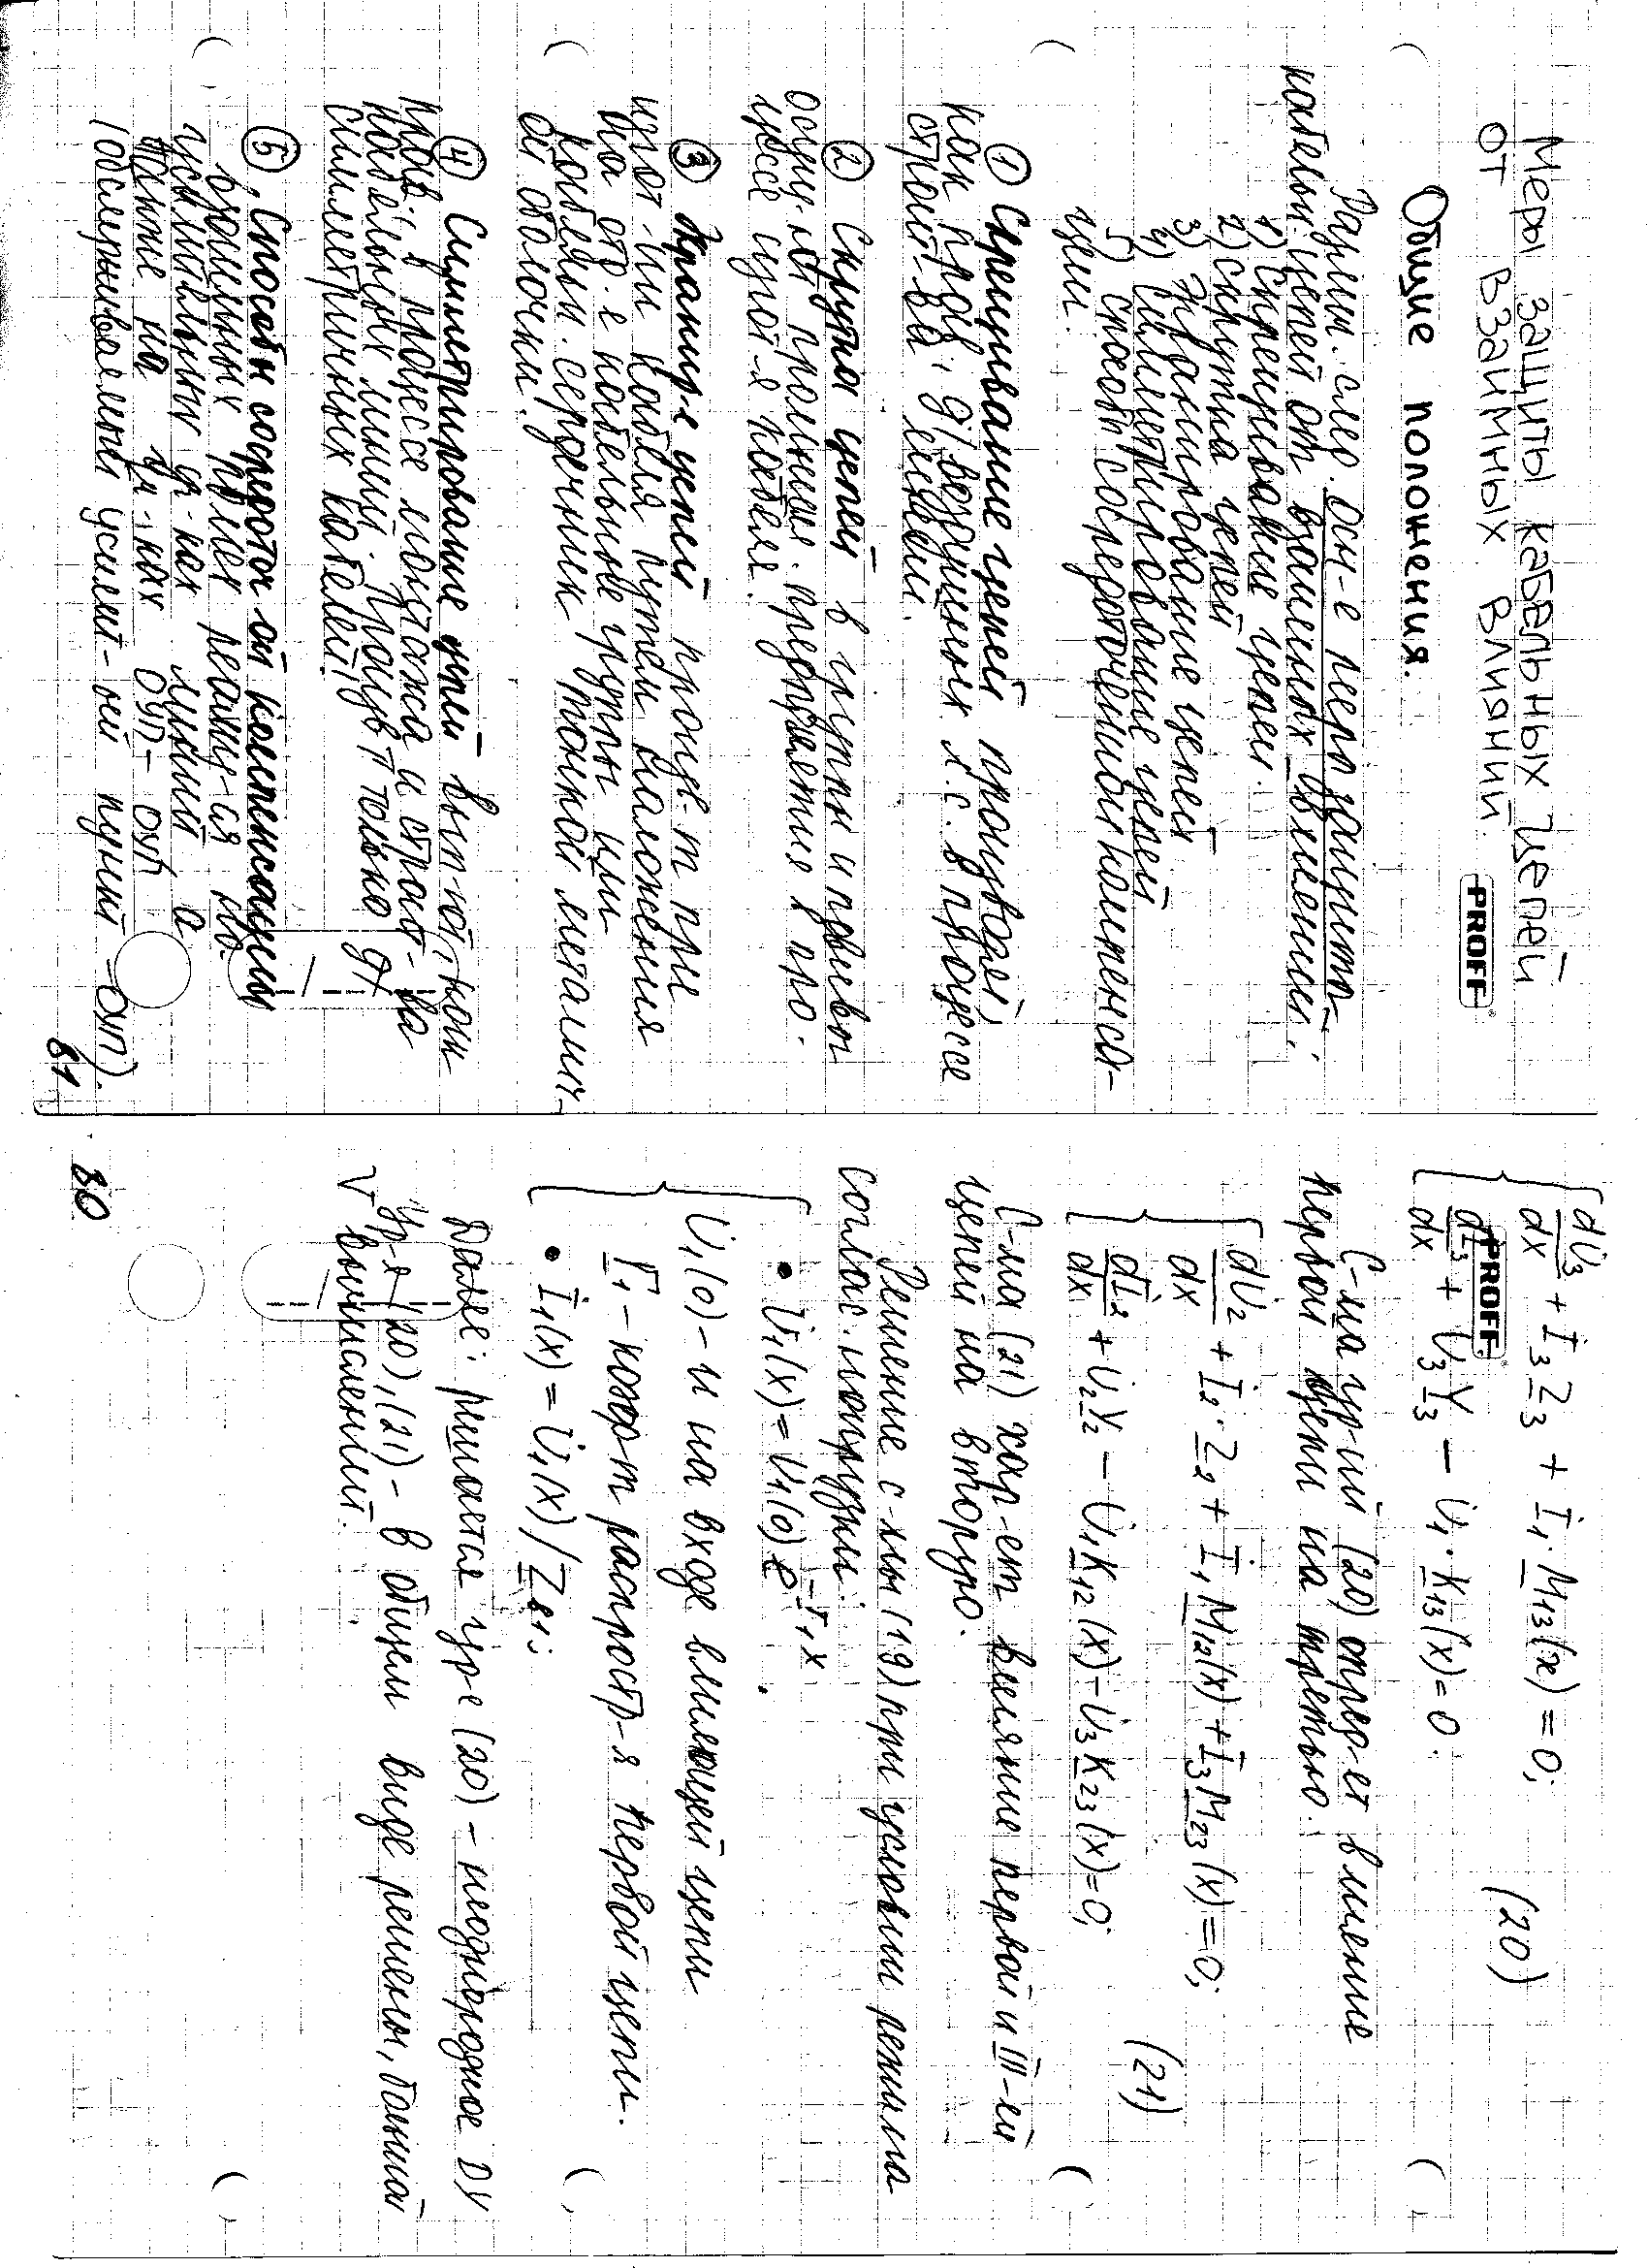 dU̇₃/dx + İ₃Z₃ + İ₁·M₁₃(x) = 0;
dİ₃/dx + U̇₃Y₃ − U̇₁·K₁₃(x) = 0.
(20)
С-ма ур-ий (20) опред-ет влияние
первой цепи на третью.
dU̇₂/dx + İ₂·Z₂ + İ₁M₁₂(x) + İ₃M₂₃(x) = 0;
dİ₂/dx + U̇₂Y₂ − U̇₁K₁₂(x) − U̇₃K₂₃(x) = 0;
(21)
С-ма (21) хар-ет влияние первой и III-ей
цепей на вторую.
Решение с-мы (19) при условии режима
соглас. нагрузки:
• U̇₁(x) = U̇₁(0) e^(−Γ₁x).
U̇₁(0) – н на входе влияющей цепи
Γ₁ – коэф-т распростр-я первой цепи.
• İ₁(x) = U̇₁(x)/Zв₁;
Далее: решается ур-е (20) – неоднородное ДУ
Ур-я (20), (21) – в общем виде решены, большой
V вычислений.
80
PROFF
Меры защиты кабельных цепей
от взаимных влияний.
PROFF
Общие положения.
Различ. след. осн-е меры защиты
кабельн. цепей от взаимных влияний:
1) Скрещивание цепи.
2) Скрутка цепей
3) Экранирование цепей
4) Симметрирование цепей
5) способ сосредоточенный компенса-
ции.
① Скрещивание цепей производ.
как прав., д/воздушных л.с. в процессе
строит-ва линии.
② Скрутка цепей в группы и повивы
осущ-ют промышл. предприятия в про-
цессе изгот-я кабеля.
③ Экранир-е цепей произв-т при
изгот-нии кабеля путем наложения
на отд-е кабельные группы или
кабельн. сердечник тонкой металич-
ой оболочки.
④ Симметрирование цепей вып-ют, как
прав., в процессе монтажа и строит-ва
кабельных линий. Произв-т только д/
симметричных кабелей.
⑤ Способы сосредоточ-ой компенсации
взаимных помех реализу-ся на
усилительн. уч-ках линий, а
также на уч-ках ОУП – ОУП
(обслуживаемый усилит-ый пункт – ОУП).
81